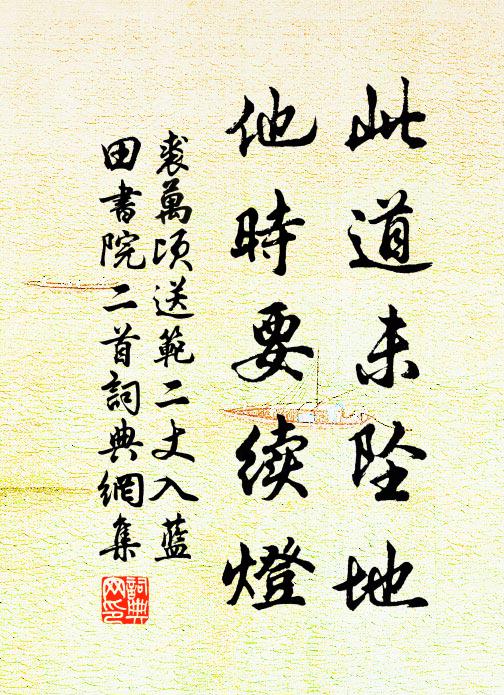 此道未坠地
他時要續燈
裘萬顷送範二丈入藍
田書院二首詞典網集
詞典網印